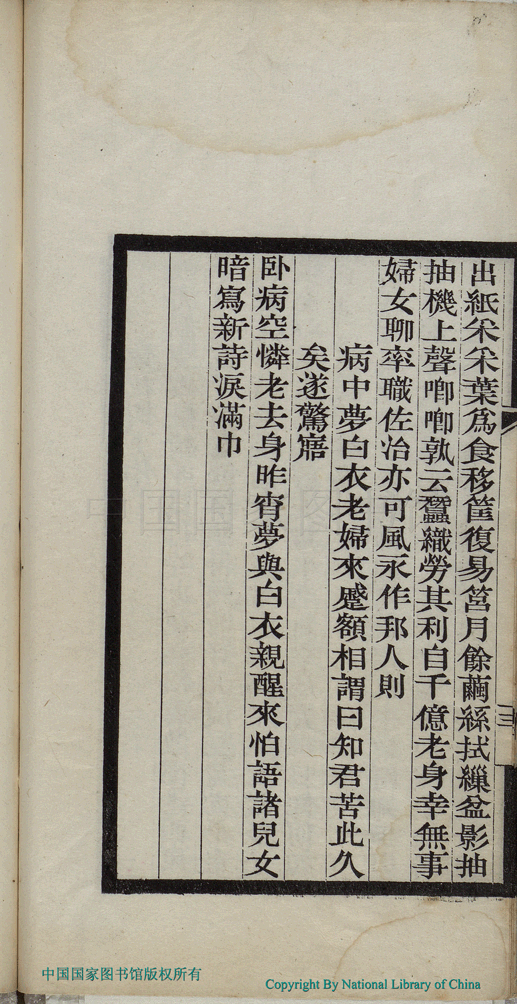 出紙采采葉爲食移筐復易筥月餘繭絲拭繅盆影抽
抽機上聲喞喞孰云蠶織勞其利自千億老身幸無事
婦女聊率職佐治亦可風永作邦人則
病中夢白衣老婦來蹙額相謂曰知君苦此久
矣遂驚寤
卧病空憐老去身昨宵夢與白衣親醒來怕語諸兒女
暗寫新詩淚滿巾
三
中国国家图书馆版权所有
Copyright By National Library of China